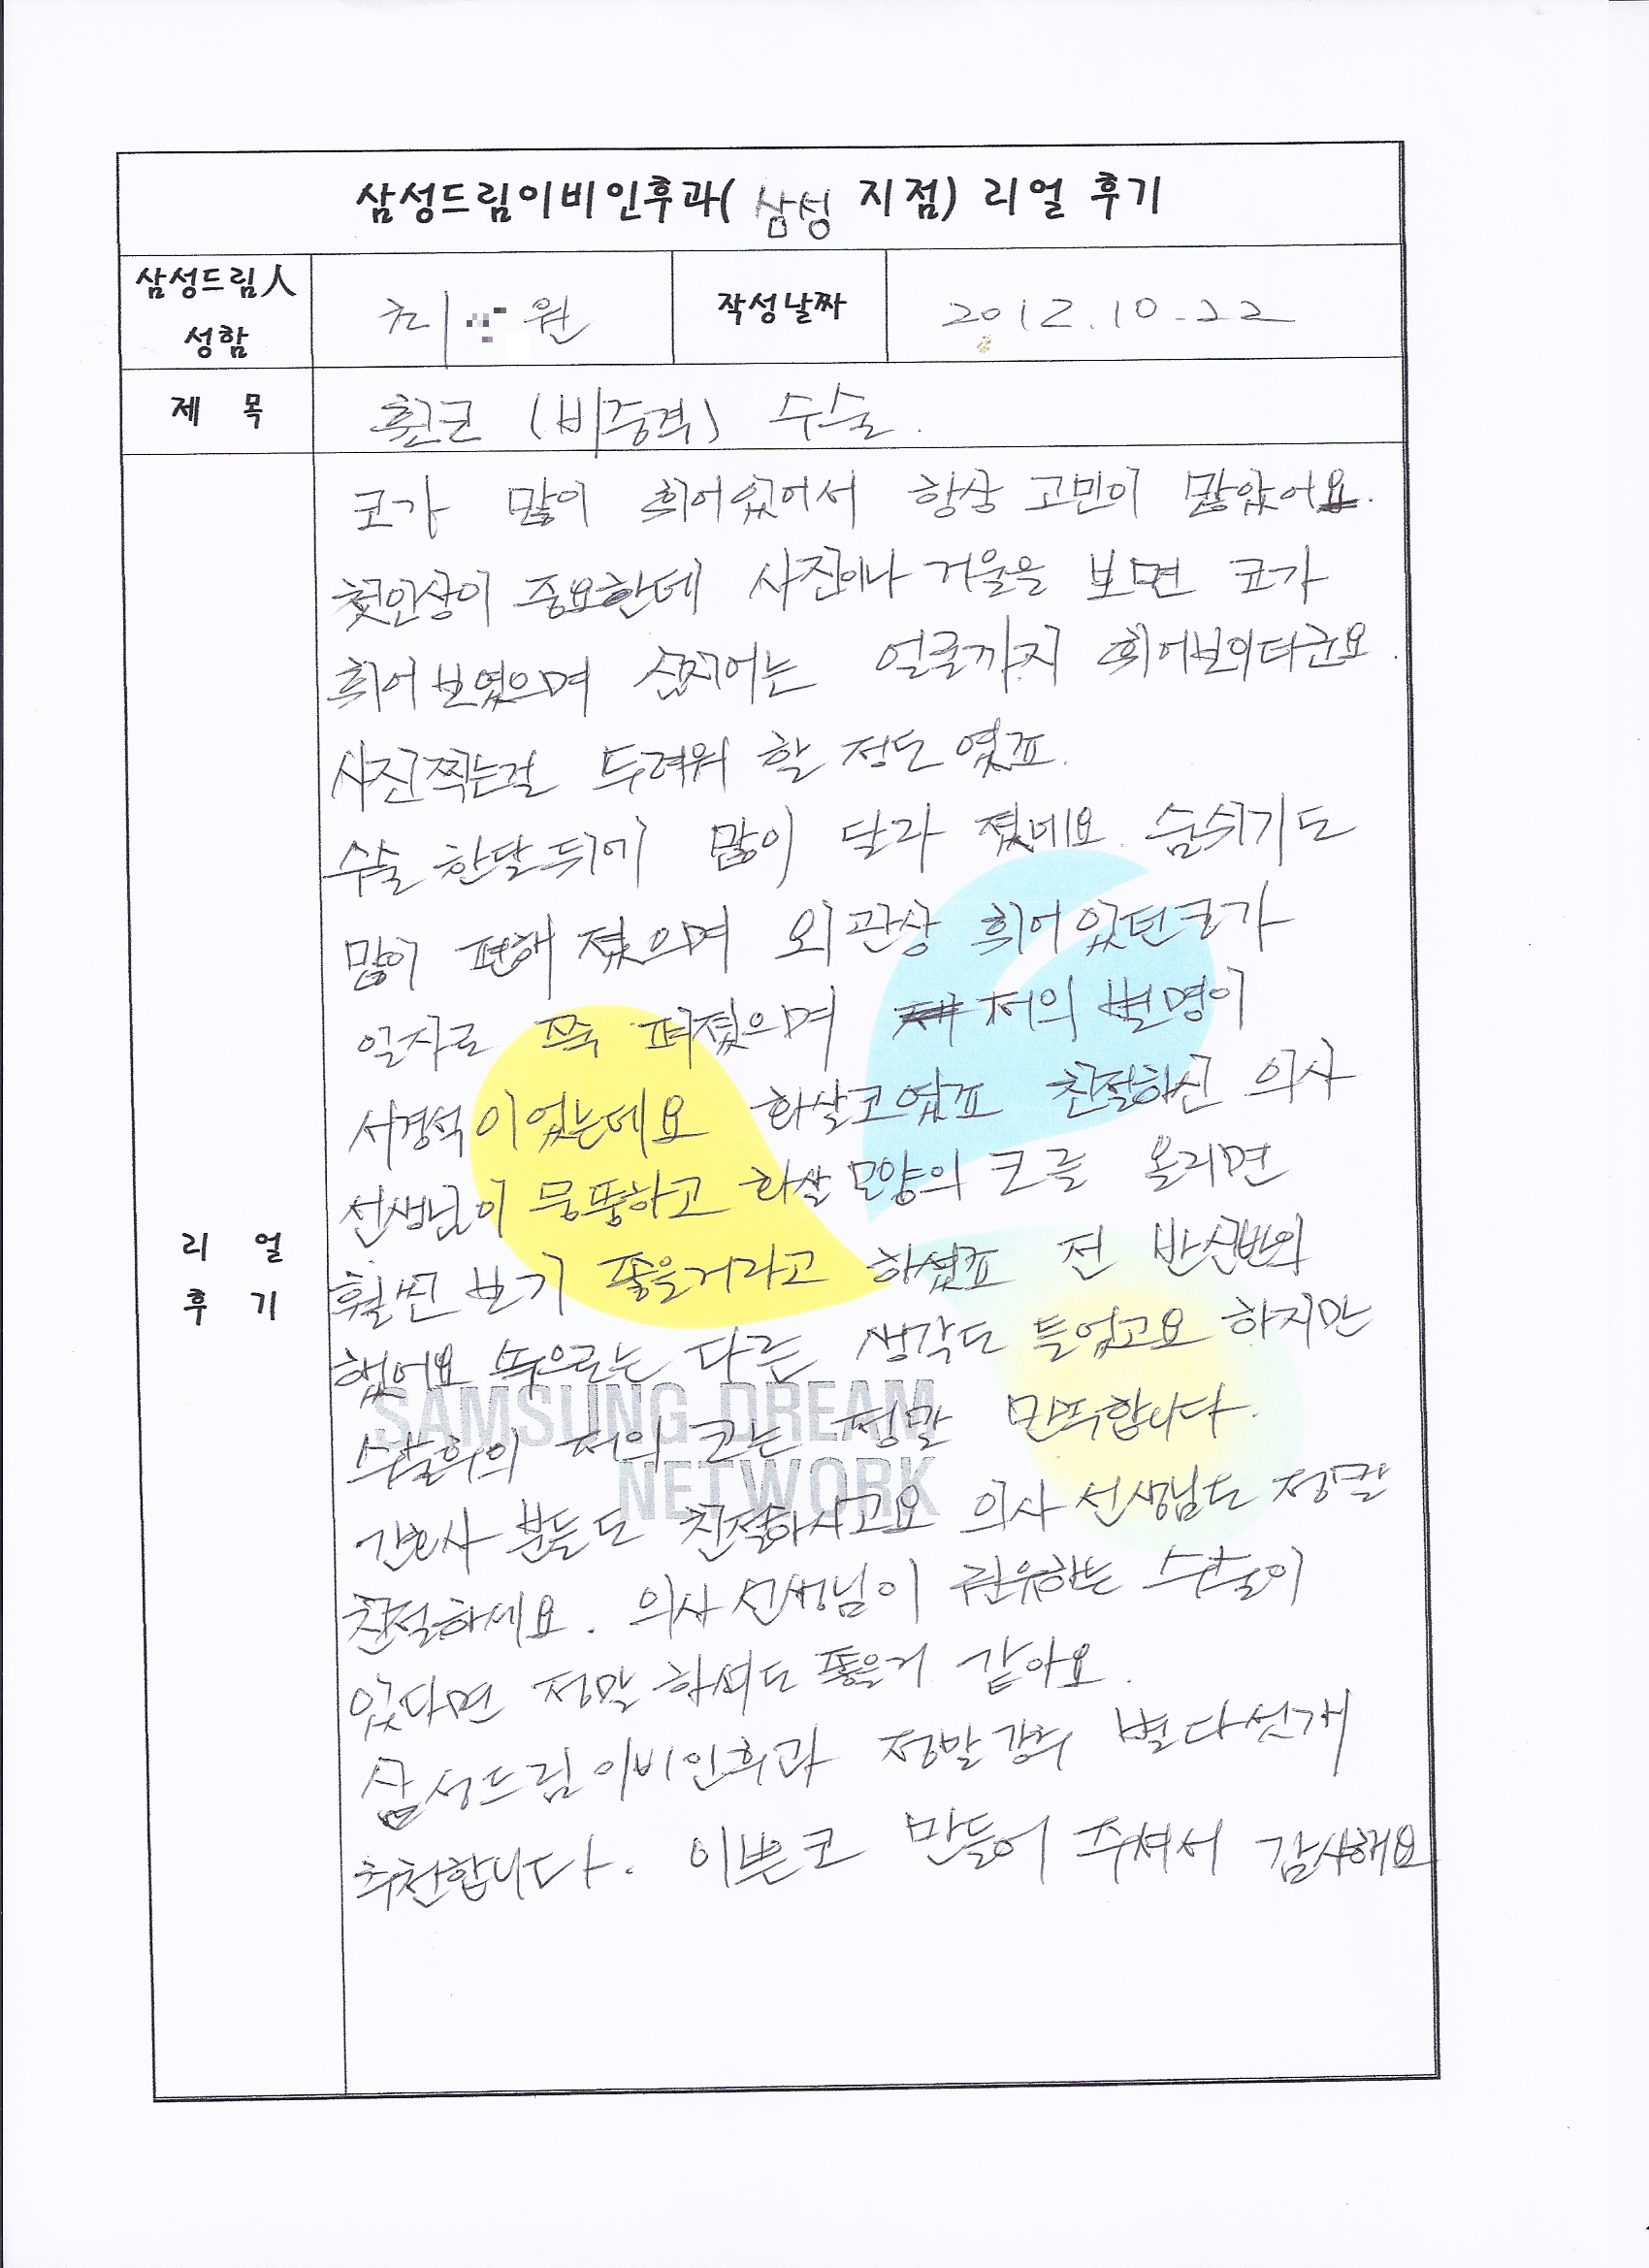 삼성드림이비인후과( 삼성 지점) 리얼 후기
삼성드림人
성함
최 원
작성날짜
2012.10.22
제 목
휜코 (비중격) 수술.
리 얼
후 기
코가 많이 휘어있어서 항상 고민이 많았어요.
첫인상이 중요한데 사진이나 거울을 보면 코가
휘어 보였으며 심지어는 얼굴까지 휘어보이더군요.
사진찍는걸 두려워 할 정도 였죠.
수술 한달 뒤에 많이 달라 졌네요. 숨쉬기도
많이 편해 졌으며 외관상 휘어 있던코가
일자로 쭉 펴졌으며 저의 별명이
서경석이었는데요 화살코였죠 친절하신 의사
선생님이 뭉뚱하고 화살 모양의 코를 올리면
훨씬 보기 좋을거라고 하셨죠 전 반신반의
했어요 속으로는 다른 생각도 들었고요 하지만
수술후의 저의 코는 정말 만족합니다.
간호사 분들도 친절하시고요 의사 선생님도 정말
친절하세요. 의사 선생님이 권유하는 수술이
있다면 정말 하셔도 좋을거 같아요.
삼성드림이비인후과 정말 강추 별 다섯개
추천합니다. 이쁜코 만들어 주셔서 감사해요
SAMSUNG DREAM
NETWORK